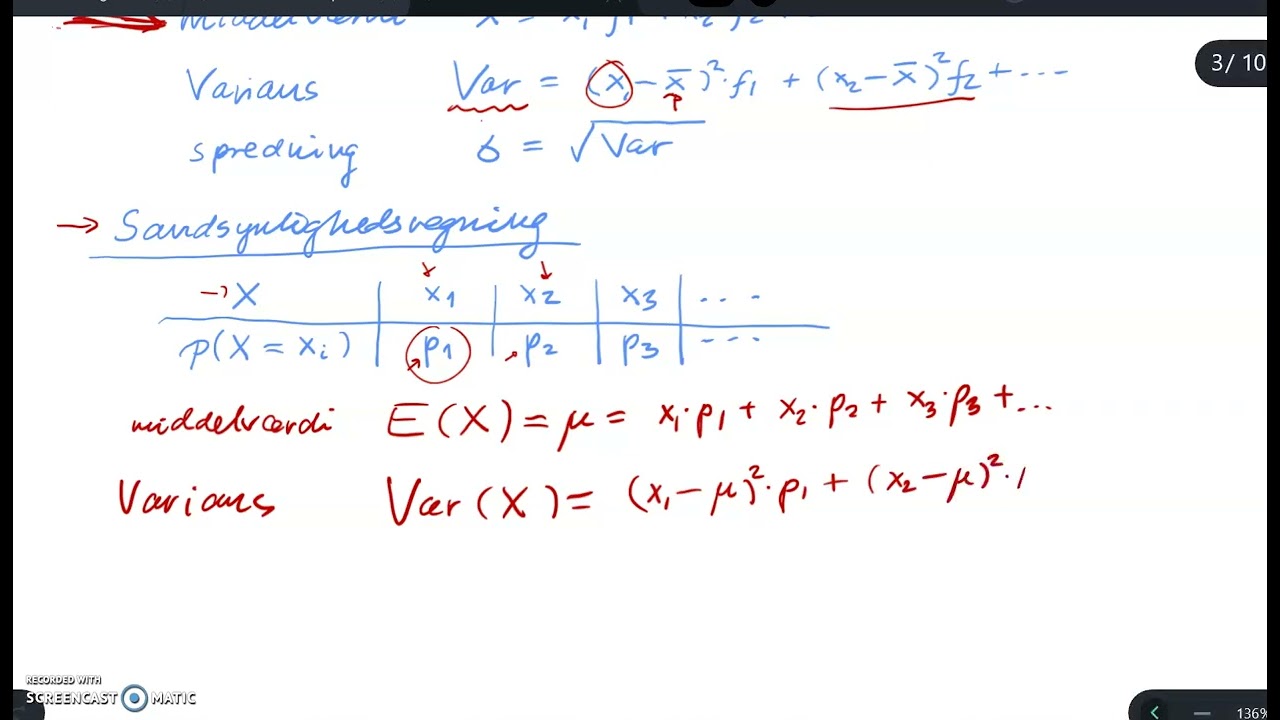 Middelværdi
3 / 10
Varians Var = (x₁ - x̄)²·f₁ + (x₂ - x̄)² f₂ + ...
spredning σ = √Var
→ Sandsynlighedsregning
→ X x₁ x₂ x₃ ...
p(X = xᵢ) p₁ p₂ p₃ ...
middelværdi E(X) = μ = x₁·p₁ + x₂·p₂ + x₃·p₃ + ...
Varians Var(X) = (x₁ - μ)²·p₁ + (x₂ - μ)²·
RECORDED WITH
SCREENCAST MATIC
136%